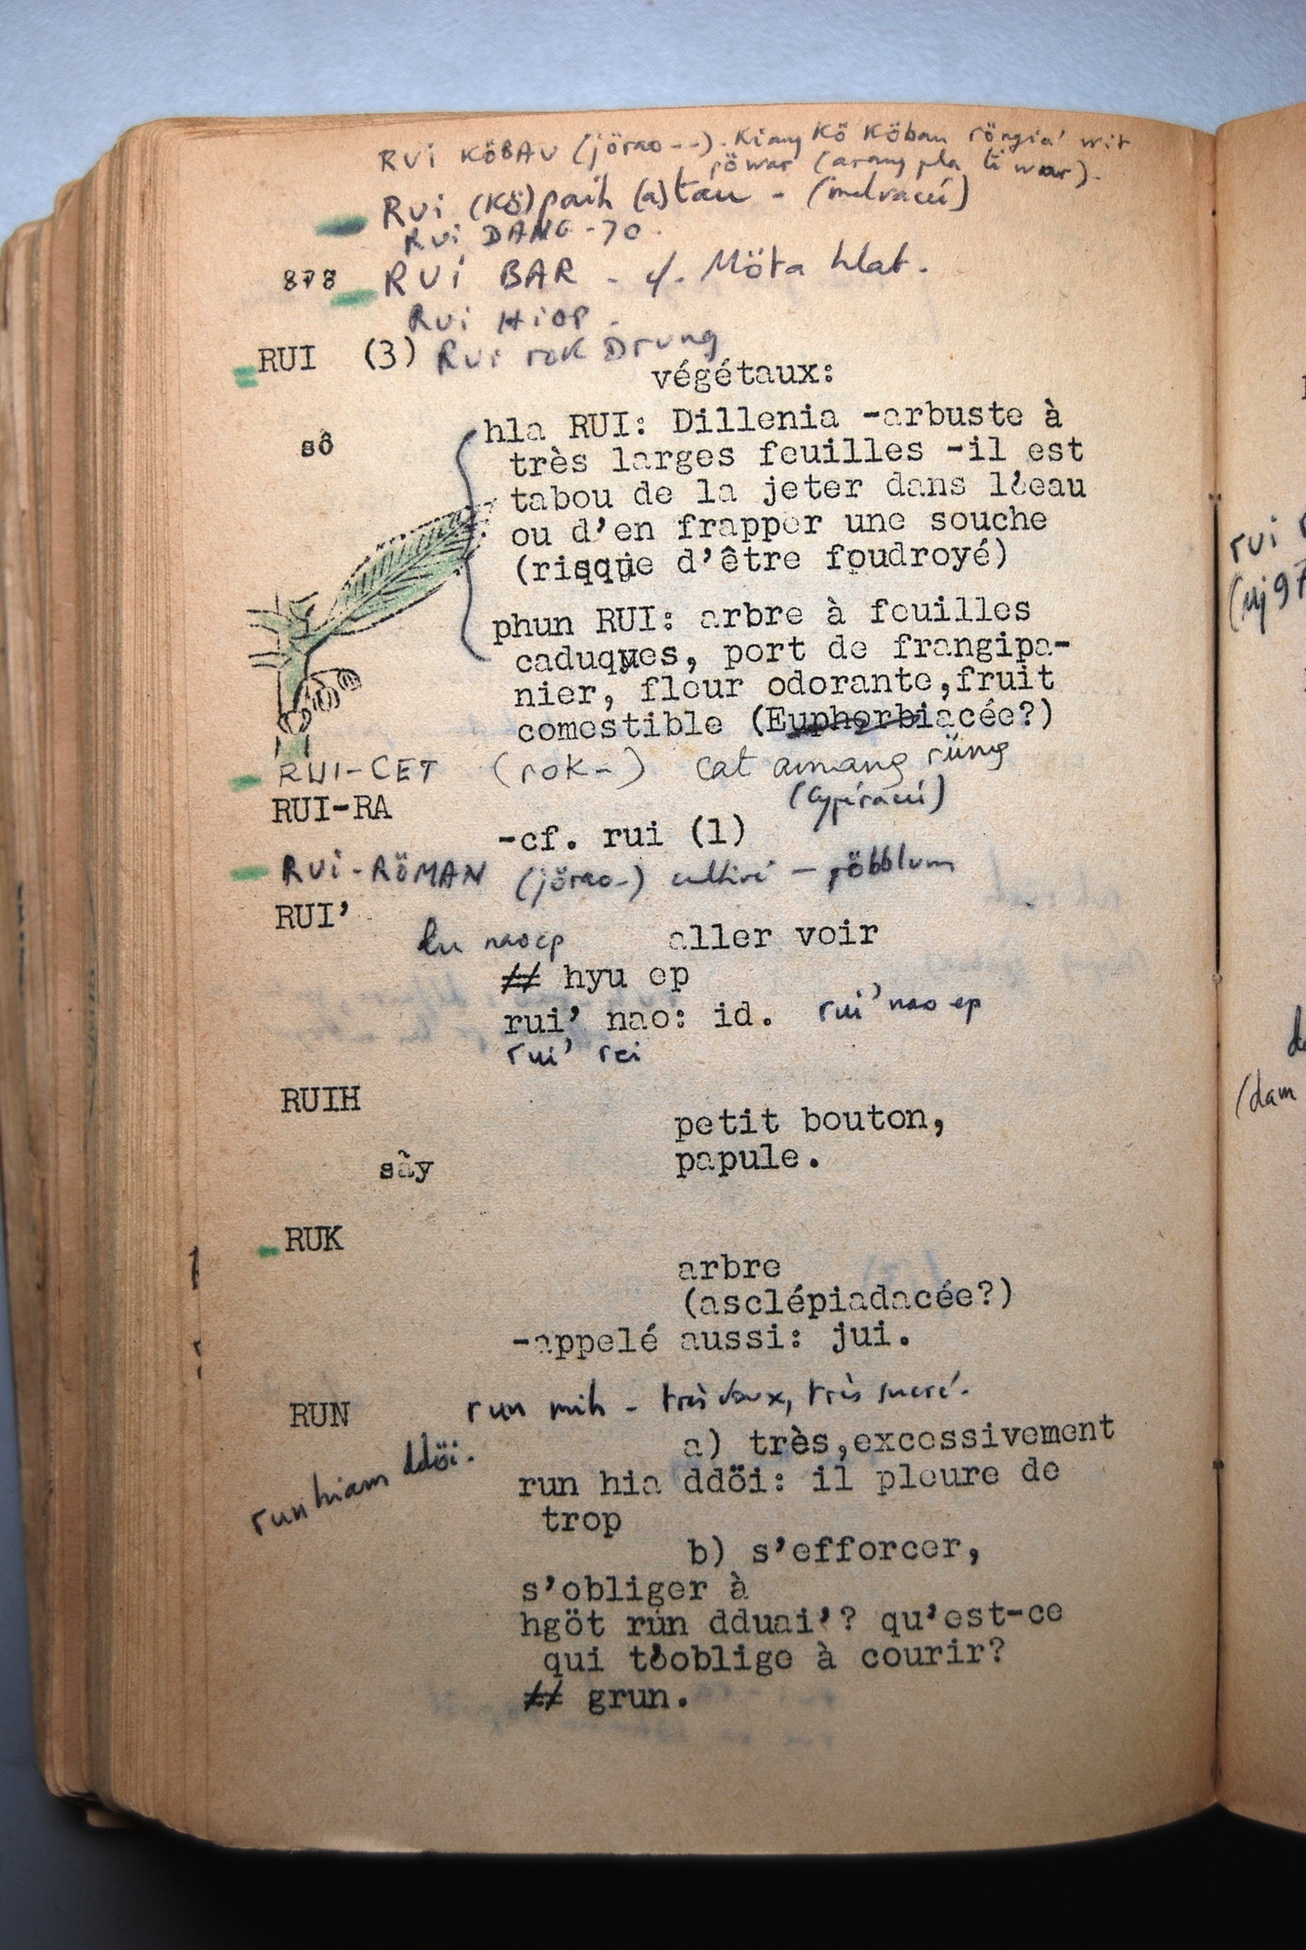 RUI KÖBAU (jörao--). Kiang kö köbau röngia' wit
röwar (arang pla ti war).
RUI (Kö)paih (a)tau - 
RUI DANG-70.
878 RUI BAR - cf. Möta hlat.
RUI HIOP -
RUI (3) Rui rok Drung
végétaux:
hla RUI: Dillenia -arbuste à
sô
très larges feuilles -il est
tabou de la jeter dans l'eau
ou d'en frapper une souche
(risque d'être foudroyé)
phun RUI: arbre à feuilles
caduques, port de frangipa-
nier, fleur odorante,fruit
comestible (Euphorbiacée?)
RUI-CET (rok-) cat amang rüng
(Cypéracée)
RUI-RA
-cf. rui (1)
RUI-RÖMAN (jörao-) cultivé - röbblum
RUI'
lu nao ep aller voir
## hyu ep
rui' nao: id. rui' nao ep
rui' rei
RUIH
petit bouton,
sây papule.
RUK
arbre
(asclépiadacée?)
-appelé aussi: jui.
RUN run mih - très doux, très sucré.
a) très,excessivement
run hiam ddöi.
run hia ddöi: il pleure de
trop
b) s'efforcer,
s'obliger à
hgöt run dduai'? qu'est-ce
qui t'oblige à courir?
## grun.
rui
(dam